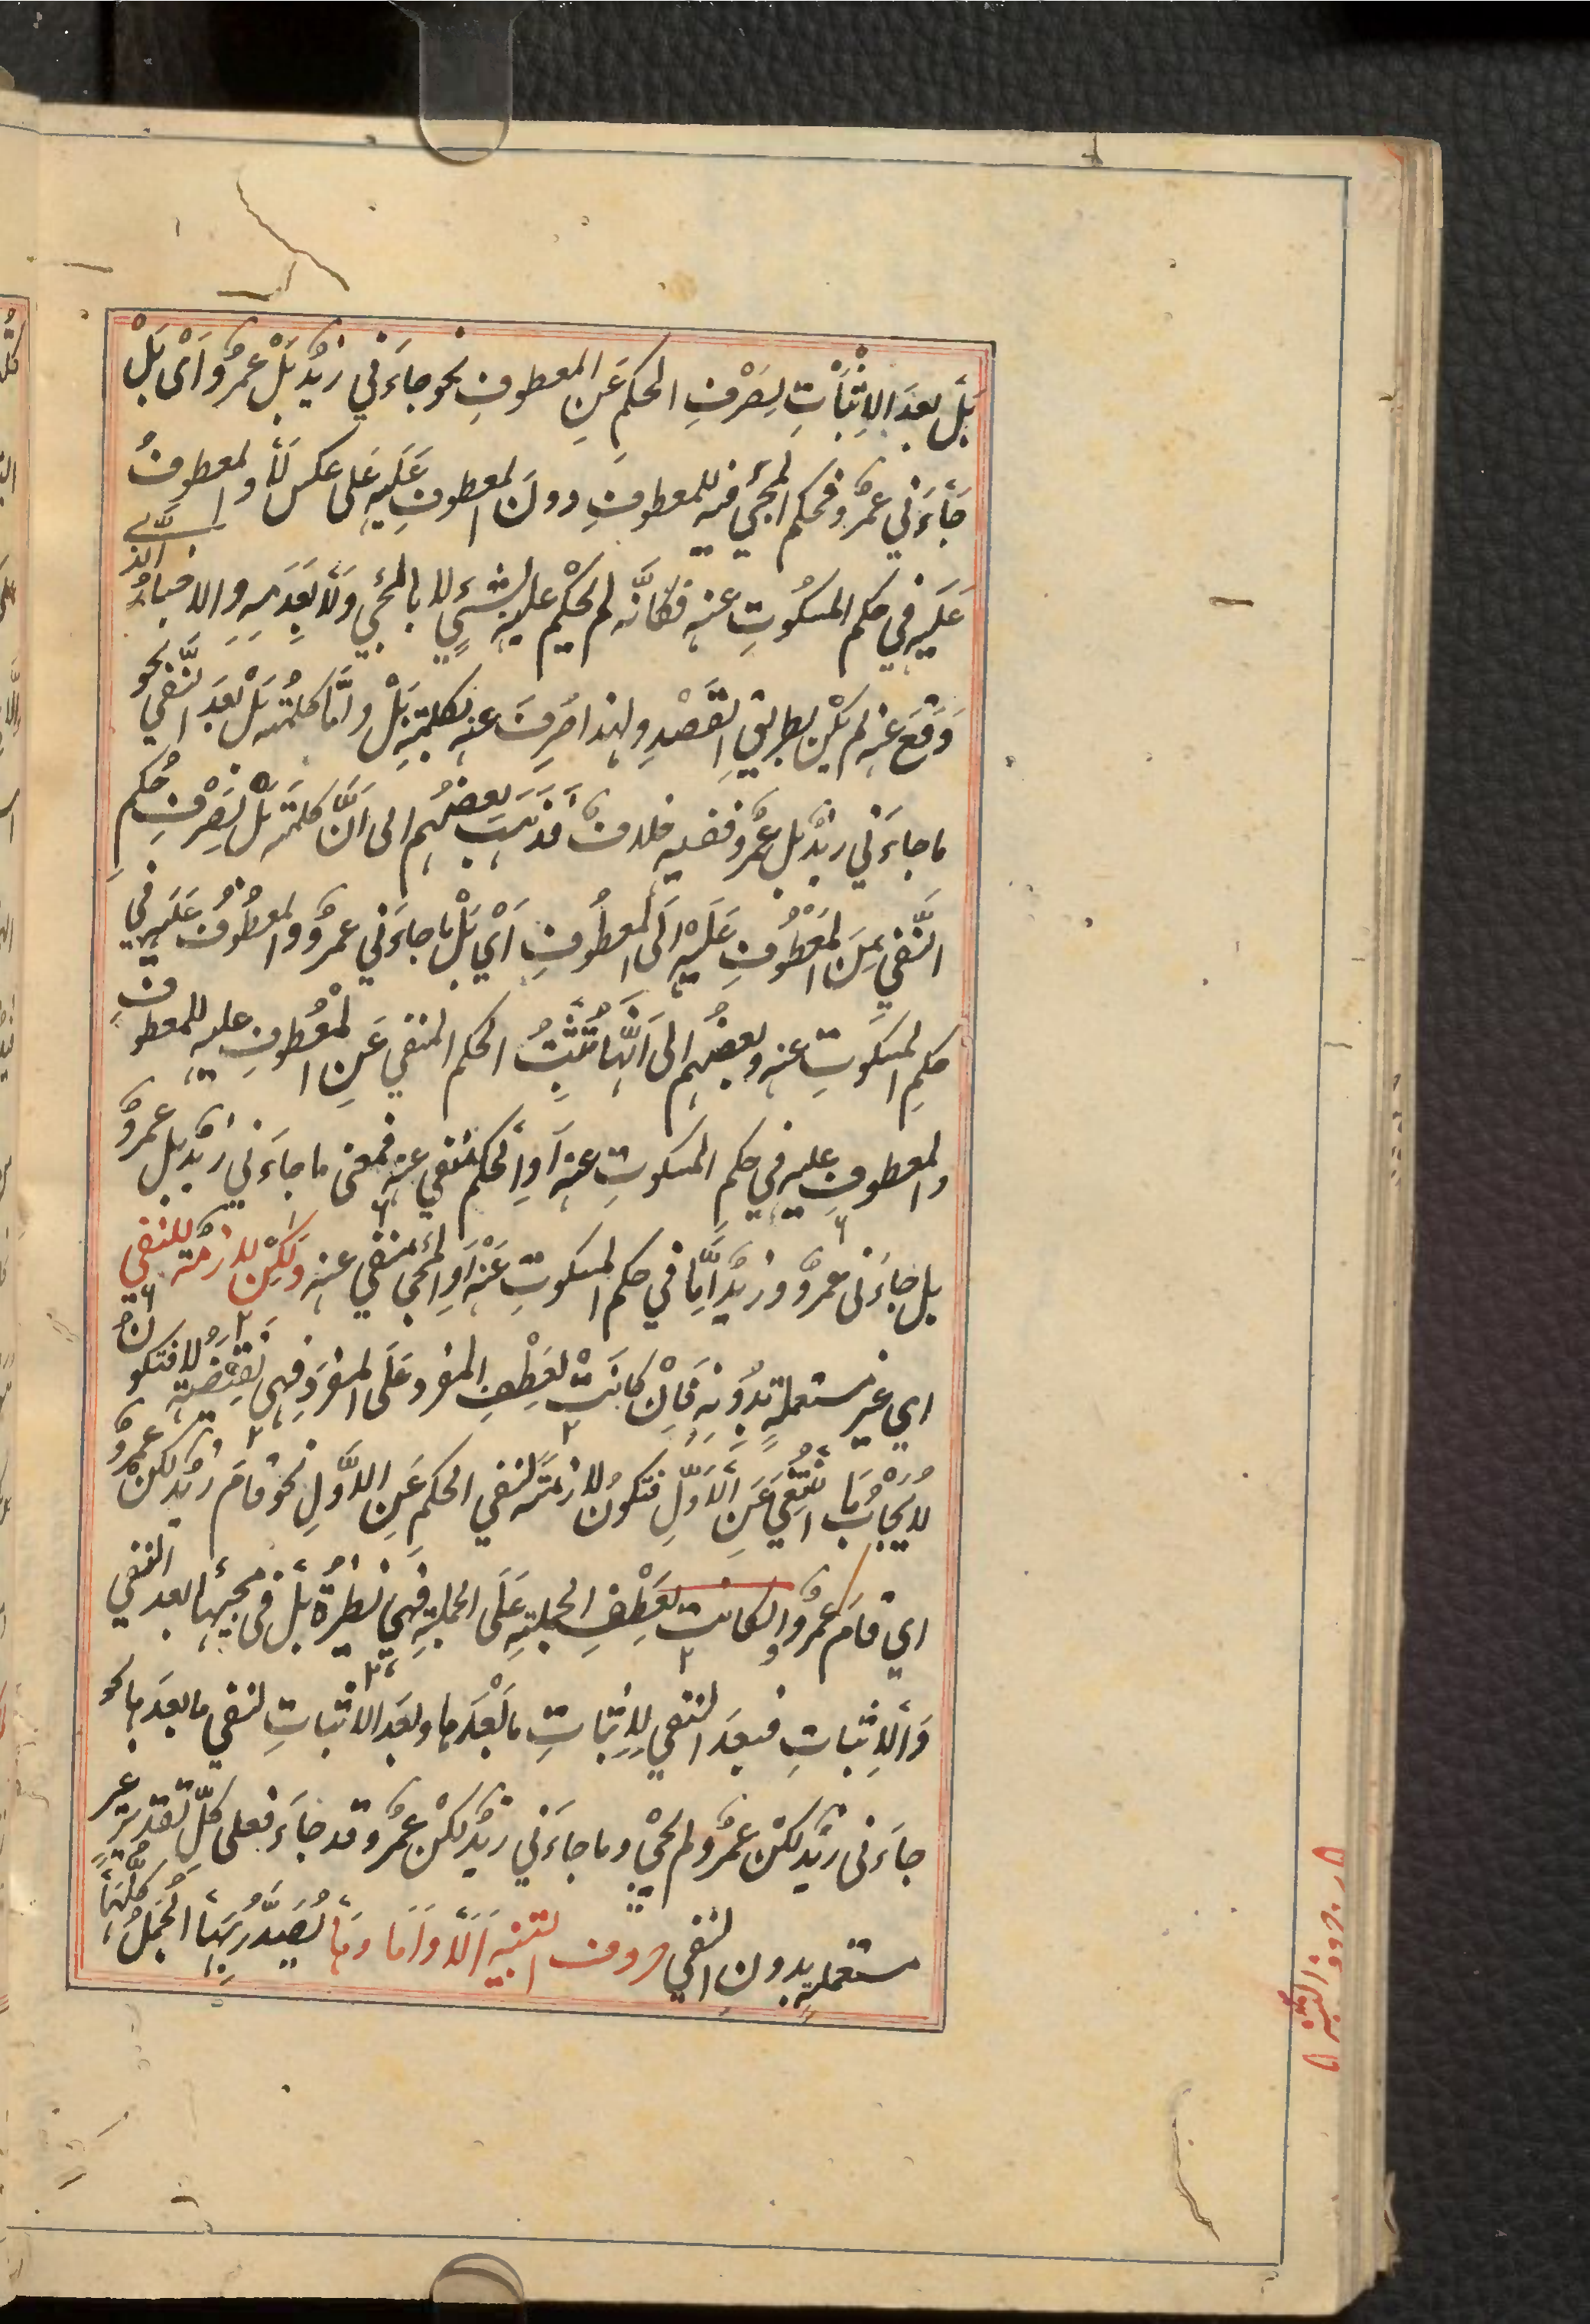 بَلْ بعدَ الاِثْبَاتِ لِصَرْفِ الحكمِ عَنِ المعطوفِ نحو جاءَني زيدٌ بَلْ عمروٌ اَىْ بَلْ
جَاءَني عمروٌ فحكم المجيء فيه للمعطوفِ دونَ المعطوفِ عَلَيهِ عَلى عكس لَا والمعطوفُ
عَلَيهِ في حكم المسكُوتِ عنهِ فكانَّه لم يحكم عليهِ بشيءٍ لا بالمجيء وَلَا بعَدَمِهِ والاخبارُ الَّذى
وَقَعَ عنه لم يكن بطريقِ القَصْدِ ولهذا صُرِفَ عنه بكلمةِ بَلْ وامَّا كلمةُ بَلْ بعدَ النَّفي نحو
ما جاءَني زيدٌ بل عمروٌ ففيه خلافٌ فَذَهَبَ بعضُهم الى اَنَّ كلمةَ بَلْ لِصَرْفِ حُكمِ
النَّفي مِنَ المَعْطُوفِ عَلَيْهِ اِلَى المعطُوفِ اَىْ بَلْ ما جاءَني عمروٌ والمعطُوفُ عَلَيهِ في
حكمِ المسكوتِ عنه وبعضُهم الى اَنَّها تُثْبِتُ الحكم المنفي عَنِ المعْطُوفِ عليهِ للمعطوفِ
والمعطوفِ عليهِ في حكم المسكوتِ عنه اَوِ الحكم منفي عنه فمعنى ما جاءَني زيدٌ بل عمروٌ
بل جاءَنى عمروٌ وزيدٌ اِمَّا في حكم المسكوتِ عَنْه اَوِ المجيء منفي عنه ولكن لازمة للنفي
اي غير مستعملةٍ بدُونِهِ فَاِنْ كانَتْ لعَطْفِ المفرد عَلَى المفرَدِ فهي نَقِيضَةُ لا فتكونُ
لايجابِ ما انتُفِيَ عَنِ الَاوَّلِ فتكونُ لازمَةً لنفي الحكمِ عَنِ الاوَّلِ نحو قامَ زيدٌ لكنْ عمروٌ
اي قامَ عمروٌ وان كانت لعَطْفِ الجملةِ عَلَى الجملةِ فهي نَظيرةُ بَلْ في مجيئها بعد النفي
وَالاِثباتِ فبعدَ النفي لِاِثباتِ ما بَعْدَها وبعدَ الاثباتِ لنفي ما بعدَها نحو
جاءَنى زيدٌ لكنْ عمروٌ لم يجئ وما جاءَني زيدٌ لكنْ عمروٌ قد جاءَ فعلى كلِّ تقديرٍ غير
مستعملةٍ بدونِ النفي حروف التنبيه اَلَا وَاَمَا وهَا يُصَدَّرُ بِهَا الجُمَلُ كلُّها
حروف التنبيه